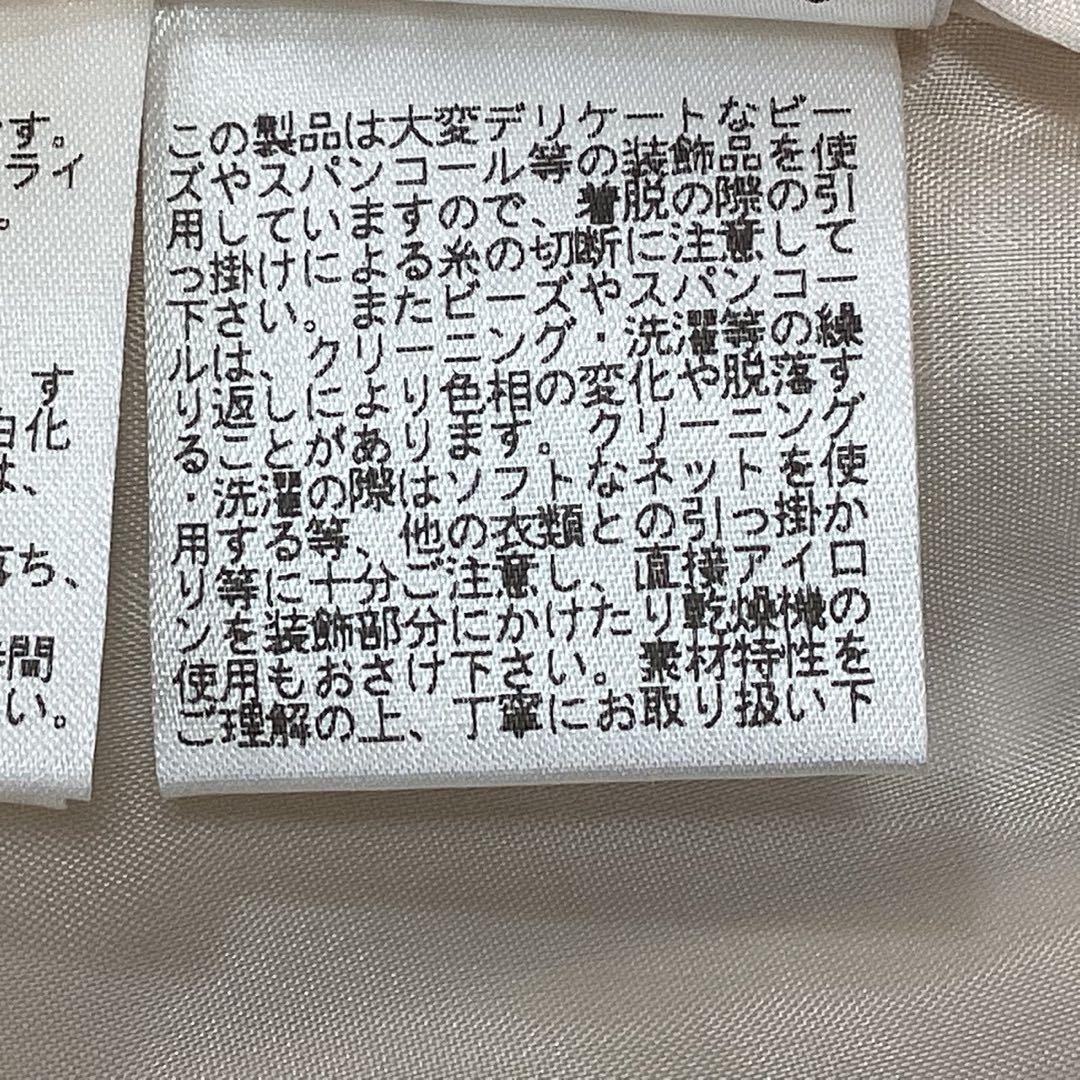 す。
ライ
。
す
化
、
ち、
間
い。
この製品は大変デリケートなビー
ズやスパンコール等の装飾品を使
用していますので、着脱の際の引
っ掛けによる糸の切断に注意して
下さい。またビーズやスパンコー
ルは、クリーニング・洗濯等の繰
り返しにより色相の変化や脱落す
ることがあります。クリーニング
・洗濯の際はソフトなネットを使
用する等、他の衣類との引っ掛か
り等に十分ご注意し、直接アイロ
ンを装飾部分にかけたり乾燥機の
使用もおさけ下さい。素材特性を
ご理解の上、丁寧にお取り扱い下